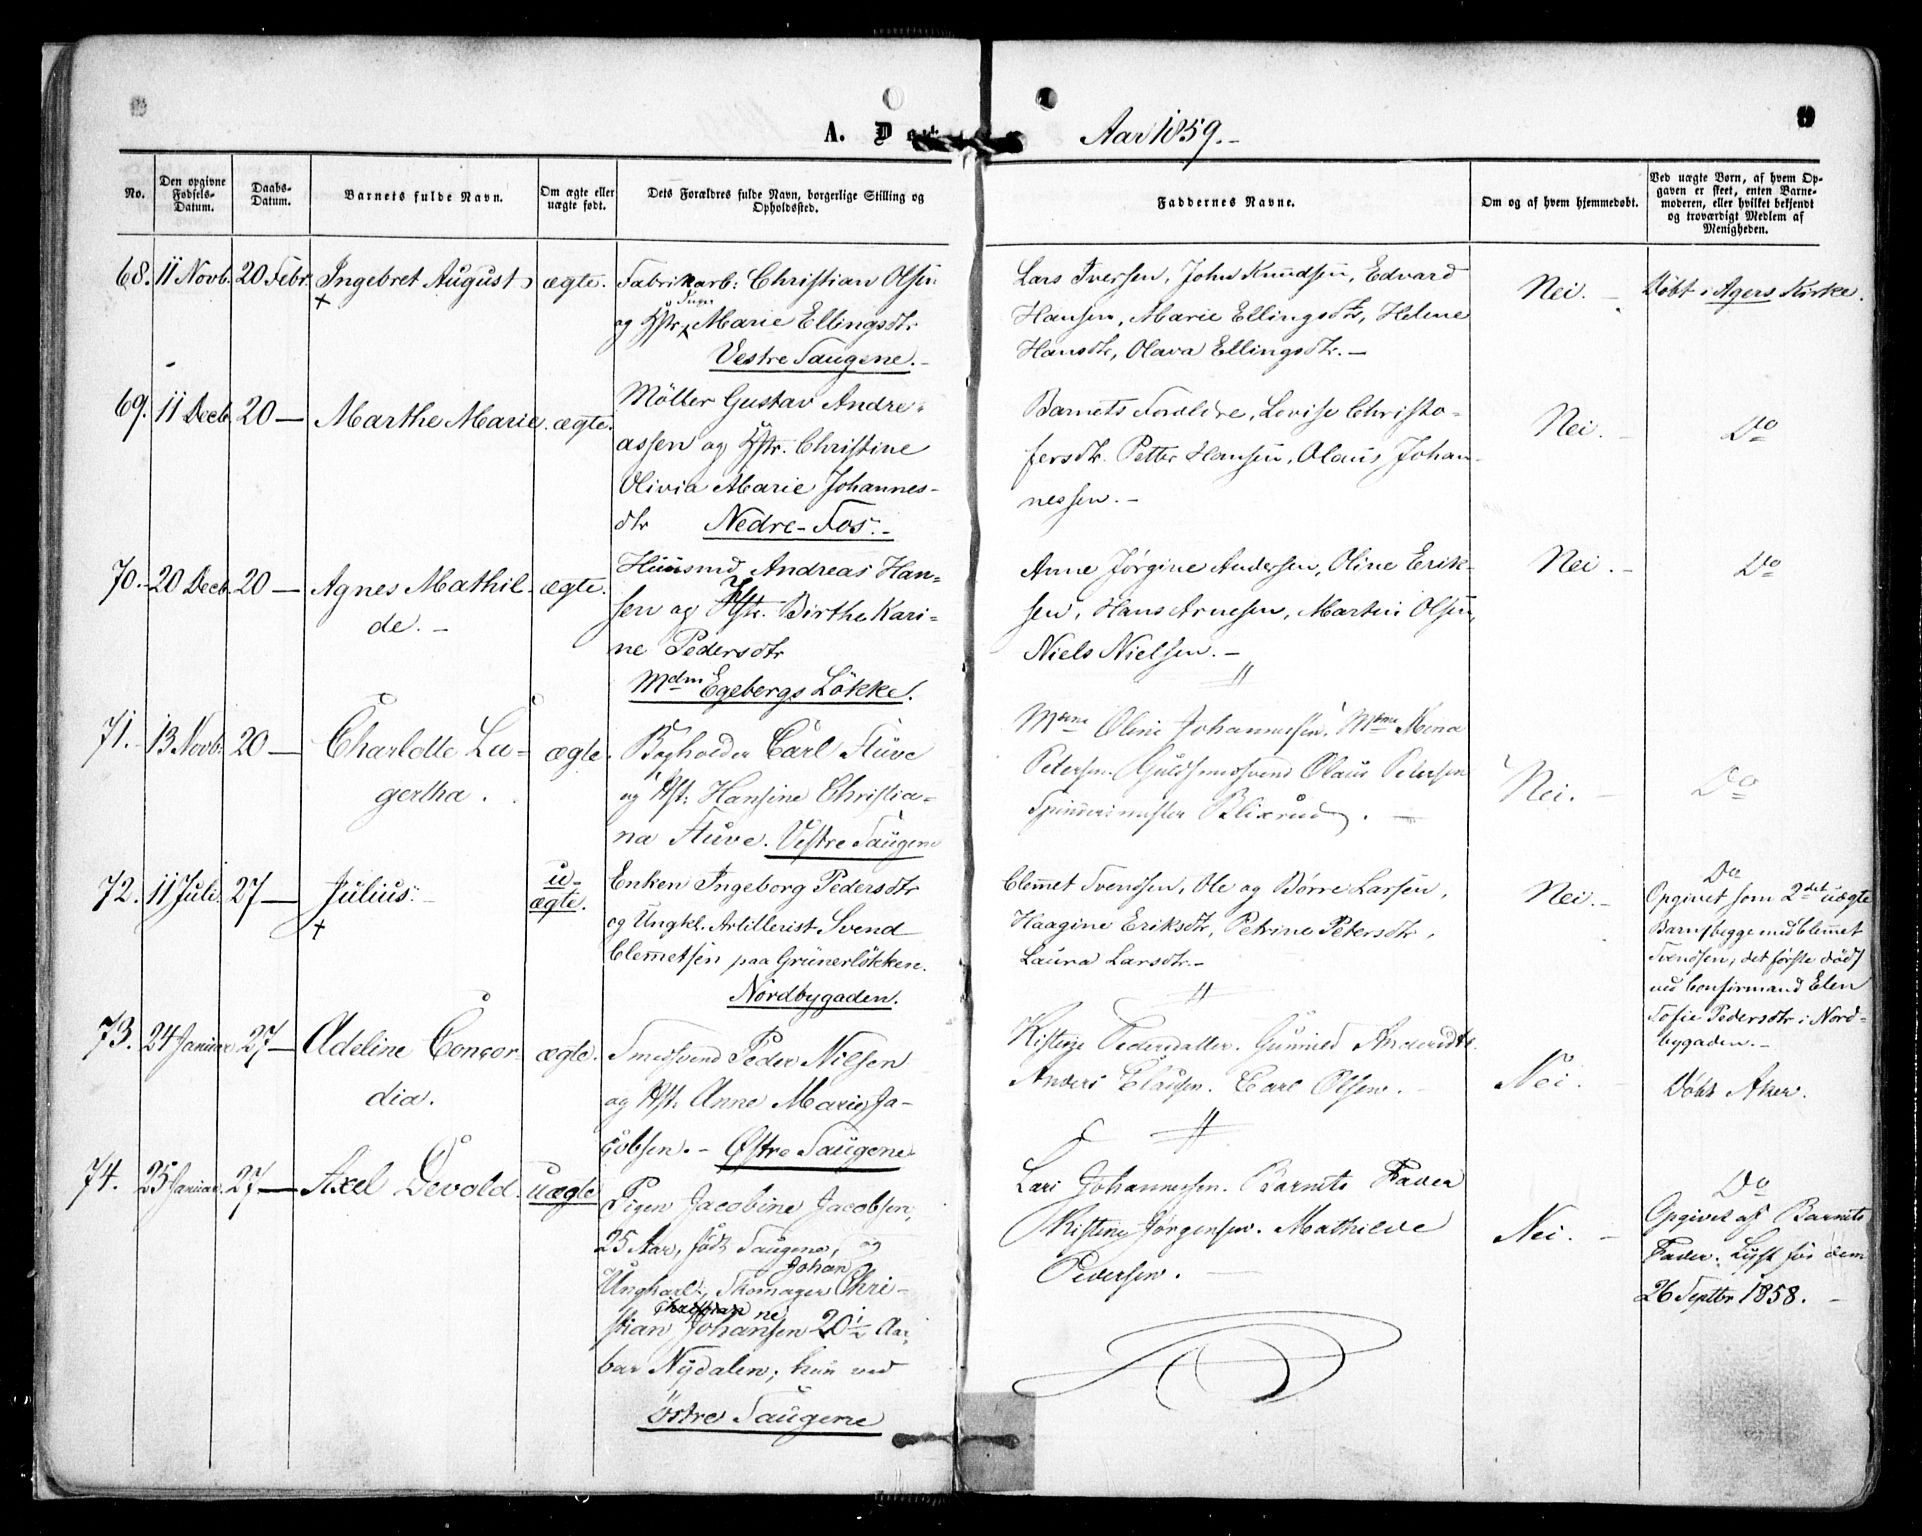 A. D Aar 1859.-
No.
Den opgivne Fødsels-Datum.
Daabs-Datum.
Barnets fulde Navn.
Om ægte eller uægte født.
Dets Forældres fulde Navn, borgerlige Stilling og Opholdssted.
Faddernes Navne.
Om og af hvem hjemmedøbt.
Ved uægte Børn, af hvem Opgaven er skeet, enten Barnemoderen, eller hvilket bekjendt og troværdigt Medlem af Menigheden.
68. 11 Novb. 20 Febr. Ingebret August ægte.
Fabrikarb: Christian Olsen
og Hstr. Marie Ellingsdtr
Vestre Saugene.-
Lars Iversen, John Knudsen, Edvard
Hansen, Marie Ellingsdtr, Helene
Hansdtr, Olava Ellingsdtr.-
Nei.-
Døbt i Agers Kirke.
69. 11 Decb. 20 — Marthe Marie. ægte.
Möller Gustav Andre-
assen og Hstr. Christine
Olivia Marie Johannes-
dtr Nedre-Fos.-
Barnets Foreldre, Lovise Christo-
fersdtr. Petter Hansen, Olaus Johan-
nessen.-
Nei.-
Do
70. 20 Decb. 20 — Agnes Mathil-
de.-
ægte.
Huusmd Andreas Han-
sen og Hstr. Birthe Kari-
ne Pedersdtr
Mdm Egebergs Lökke.
Anne Jørgine Andersen, Oline Erik-
sen, Hans Arnesen, Martin Olsen,
Niels Nielsen.-
Nei.-
Do
71. 13 Novb. 20 — Charlotte Lu-
gertha.
ægte.
Bogholder Carl Stüve
og Hst: Hansine Christia-
na Stüve. Vestre Saugene
Mdme Oline Johannessen. Mdme Mena
Petersen. Guldsmedsvend Olaus Petersen
Spinnerimester Blixrud.-
Nei.-
Do
72. 11 Juli. 27 — Julius.-
u-
ægte.
Enken Ingeborg Pedersdtr
og Ungkl. Artillerist Svend
Clemetsen paa Grünerlökken.
Nordbygaden.
Clemet Svendsen, Ole og Børre Larsen,
Haagine Eriksdtr, Petrine Petersdtr,
Laura Larsdtr.-
Nei.-
Do
Opgivet som 2det uægte
Barn begge med Clemet
Svendsen, det første død
ved Confirmand Elen
Sofie Pedersdtr i Nord-
bygaden.-
73. 24 Januar 27 — Adeline Concor-
dia.
ægte.
Smedsvend Peder Nilsen
og Hst: Anne Marie Ja-
cobsen.- Østre Saugene
Kistine Pedersdatter. Gunnild Andersdtr.
Anders Clausen. Carl Olsen.
Nei.
Døbt Aker.
74. 25 Januar. 27 — Axel Devold. uægte
Pigen Jacobine Jacobsen,
25 Aar, født Saugene, og
Johan
Ungkarl, Thomager Chri-
stian Johansen 20½ Aar
bar Nydalen; hun ved
östre Saugene
Lars Johannessen. Barnets Fader
Kistine Jørgensen. Mathilde
Pedersen.
Nei.-
Do
Opgivet af Barnets
Fader. Lyst for dem
26 Septbr 1858.-